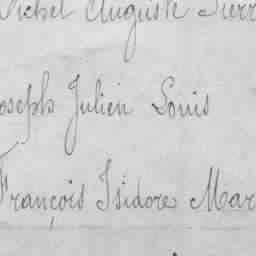 Michel Auguste Pierr
Joseph Julien Louis
François Isidore Mar